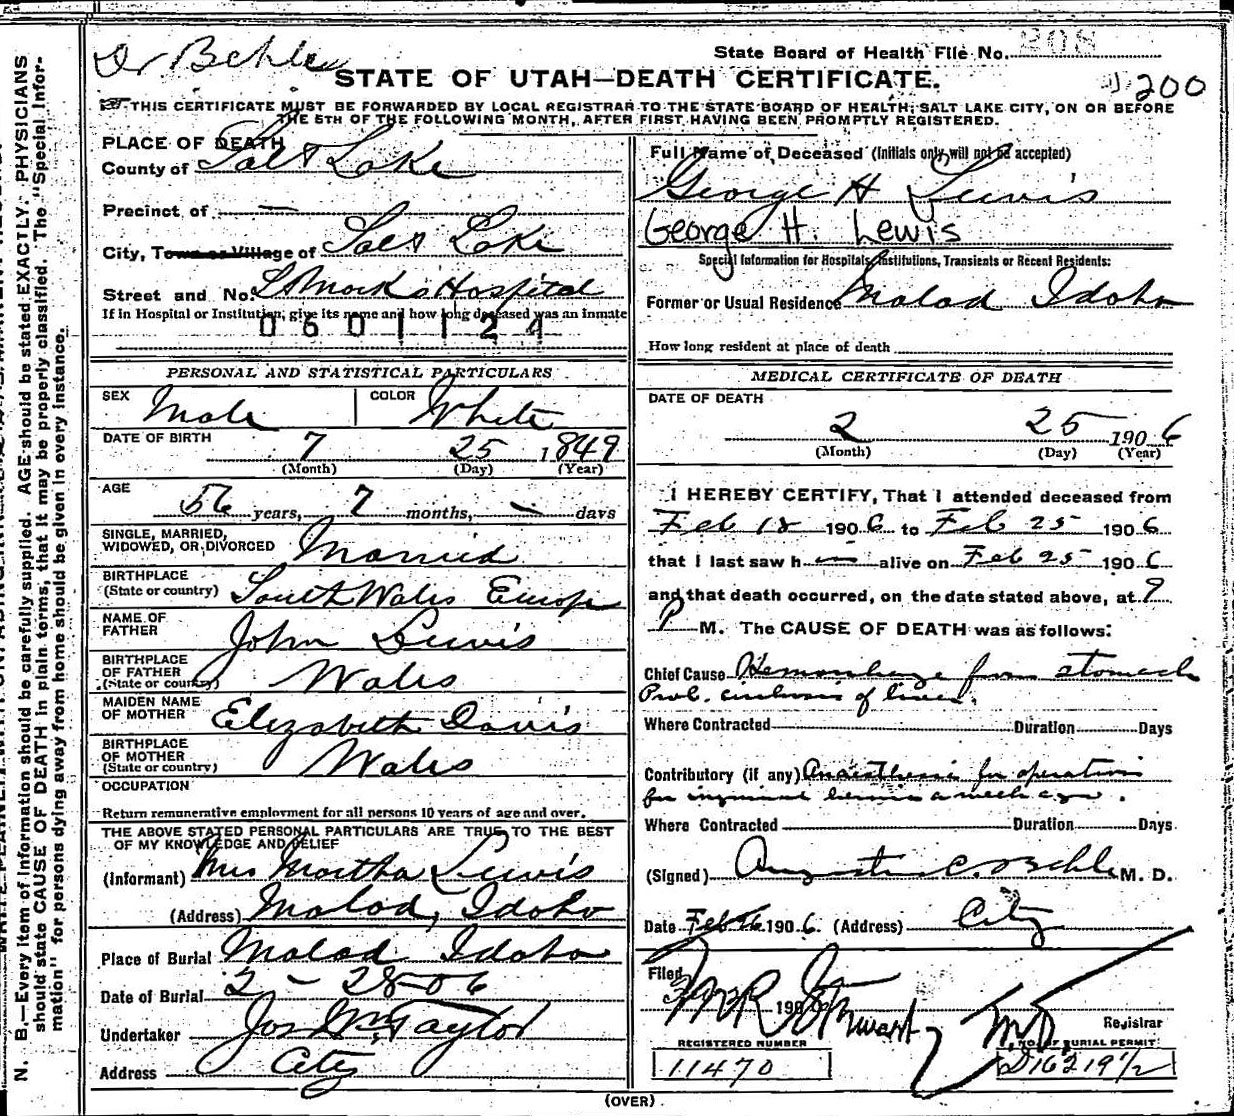 Dr Behle
State Board of Health File No. 208
STATE OF UTAH—DEATH CERTIFICATE.
200
THIS CERTIFICATE MUST BE FORWARDED BY LOCAL REGISTRAR TO THE STATE BOARD OF HEALTH, SALT LAKE CITY, ON OR BEFORE
THE 5TH OF THE FOLLOWING MONTH, AFTER FIRST HAVING BEEN PROMPTLY REGISTERED.
PLACE OF DEATH
County of Salt Lake
Precinct of —
City, Town or Village of Salt Lake
Street and No. St Mark's Hospital
If in Hospital or Institution, give its name and how long deceased was an inmate
0601124
PERSONAL AND STATISTICAL PARTICULARS
SEX Male COLOR White
DATE OF BIRTH 7 25 1849
(Month) (Day) (Year)
AGE
56 years, 7 months, — days
SINGLE, MARRIED,
WIDOWED, OR DIVORCED Married
BIRTHPLACE
(State or country) South Wales Europe
NAME OF
FATHER John Lewis
BIRTHPLACE
OF FATHER
(State or country) Wales
MAIDEN NAME
OF MOTHER Elizabeth Davis
BIRTHPLACE
OF MOTHER
(State or country) Wales
OCCUPATION
Return remunerative employment for all persons 10 years of age and over.
THE ABOVE STATED PERSONAL PARTICULARS ARE TRUE TO THE BEST
OF MY KNOWLEDGE AND BELIEF
(Informant) Mrs Martha Lewis
(Address) Malad, Idaho
Place of Burial Malad Idaho
Date of Burial 2 - 28-06
Undertaker Jos Wm Taylor
Address City
Full Name of Deceased (Initials only will not be accepted)
George H Lewis
George H. Lewis
Special Information for Hospitals, Institutions, Transients or Recent Residents:
Former or Usual Residence Malad Idaho
How long resident at place of death
MEDICAL CERTIFICATE OF DEATH
DATE OF DEATH
2 25 1906
(Month) (Day) (Year)
I HEREBY CERTIFY, That I attended deceased from
Feb 18 1906 to Feb 25 1906
that I last saw h— alive on Feb 25 1906
and that death occurred, on the date stated above, at 9
P M. The CAUSE OF DEATH was as follows:
Chief Cause Hemorrhage from stomach
Prob. cirrhosis of liver.
Where Contracted Duration Days
Contributory (if any) Anaesthesia for operation
for inguinal hernia a week ago.
Where Contracted Duration Days
(Signed) Augustus C. Behle M. D.
Date Feb 26 1906. (Address) City
Filed 190
M R Stewart MD Registrar
REGISTERED NUMBER
11470
NO. OF BURIAL PERMIT
D16219 1/2
(OVER)
N. B.—Every item of information should be carefully supplied. AGE should be stated EXACTLY. PHYSICIANS
should state CAUSE OF DEATH in plain terms, that it may be properly classified. The "Special Infor-
mation" for persons dying away from home should be given in every instance.